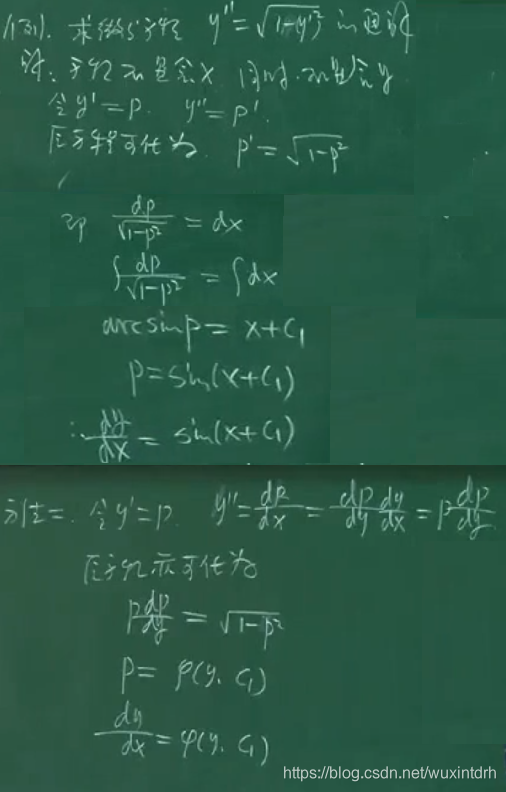 例3). 求微分方程 y''=√(1-y'²) 的通解
解: 方程不显含x 同时不显含y
令y'=p. y''=p'
原方程可化为 p'=√(1-p²)
即 dp/√(1-p²) = dx
∫dp/√(1-p²) = ∫dx
arcsin p = x+C₁
p=sin(x+C₁)
∴ dy/dx = sin(x+C₁)
方法二. 令y'=p. y''=dp/dx=dp/dy dy/dx=p dp/dy
原方程亦可化为
p dp/dy = √(1-p²)
p= φ(y, C₁)
dy/dx = φ(y, C₁)
https://blog.csdn.net/wuxintdrh